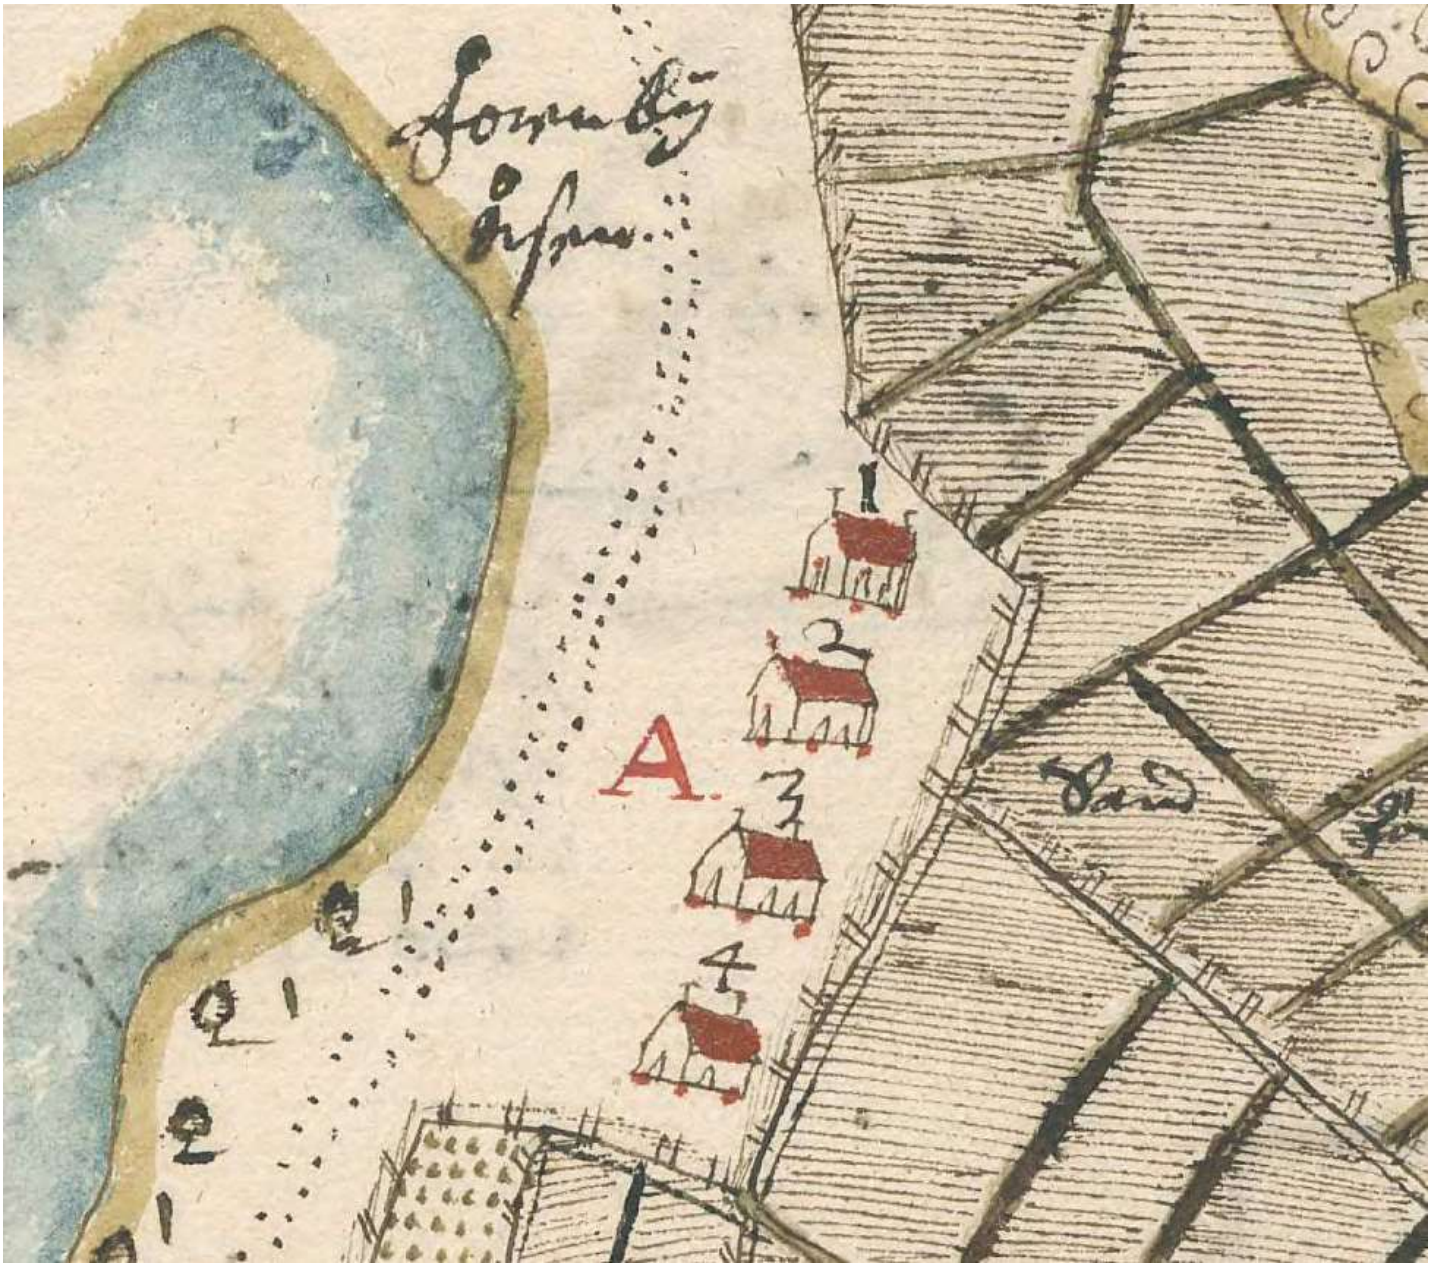 Fornby
åsen
1
2
A.
3
4
Sand